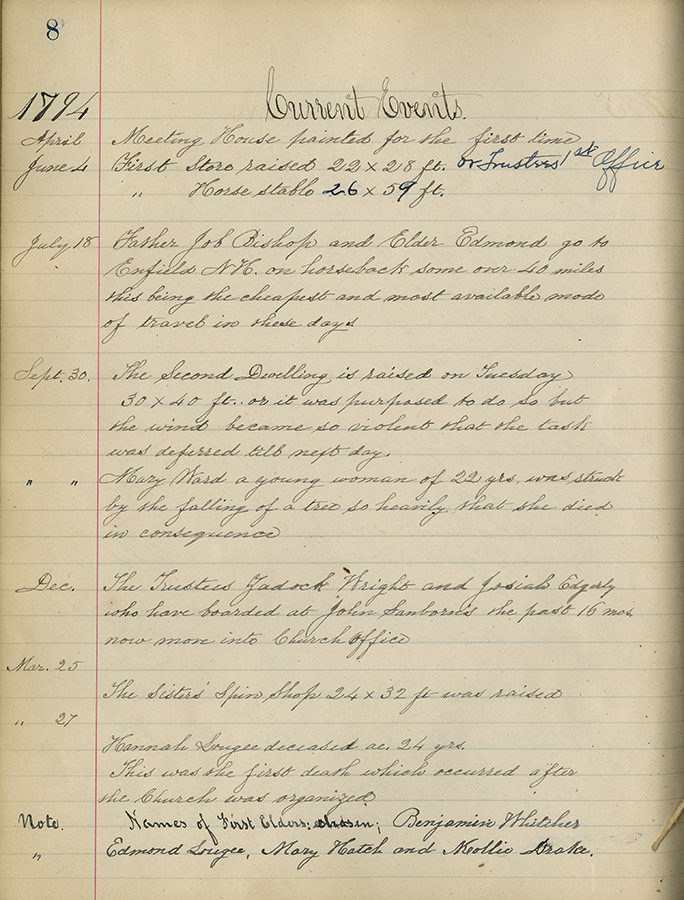 8
1794 Current Events.
April Meeting House painted for the first time
June 4 First Store raised 22 x 28 ft. or Trustees' 1st Office
" Horse stable 26 x 59 ft.
July 18 Father Job Bishop and Elder Edmond go to
Enfield N.H. on horseback some over 40 miles
this being the cheapest and most available mode
of travel in these days
Sept. 30. The Second Dwelling is raised on Tuesday
30 x 40 ft. or it was purposed to do so but
the wind became so violent that the task
was deferred till next day.
" " Mary Ward a young woman of 22 yrs. was struck
by the falling of a tree so heavily that she died
in consequence
Dec. The Trustees Zadock Wright and Josiah Edgerly
who have boarded at John Sanborn's the past 16 mos.
now move into Church Office
Mar. 25
The Sisters' Spin Shop 24 x 32 ft was raised
" 27
Hannah Lougee deceased ae. 24 yrs.
This was the first death which occurred after
the Church was organized.
Note. Names of First Elders: chosen; Benjamin Whitcher
" Edmond Lougee, Mary Hatch and Mollie Drake.